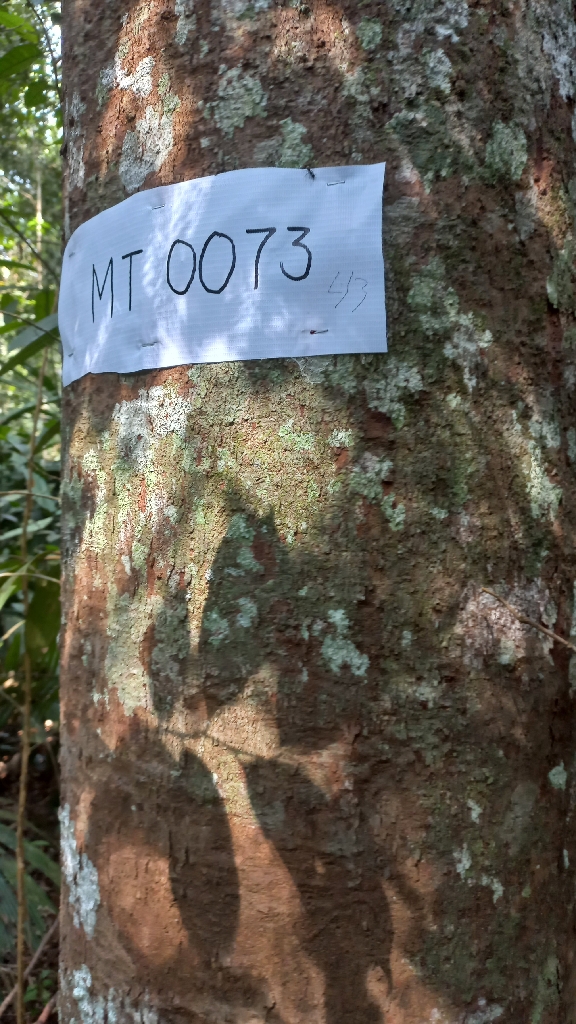 MT 0073
43